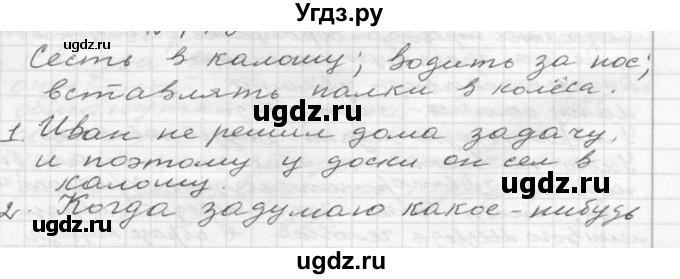 Угдз.ру
Сесть в калошу; водить за нос;
вставлять палки в колёса.
ugdz.ru ugdz.ru
1. Иван не решил дома задачу,
ugdz.ru
и поэтому у доски он сел в
калошу.
ugdz.ru ugdz.ru
2. Когда задумаю какое-нибудь
ugdz.ru